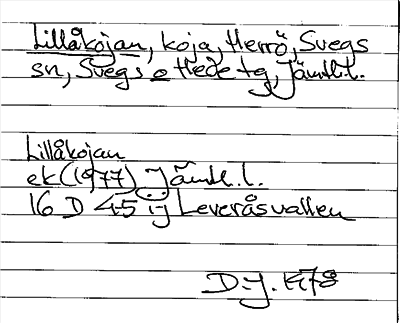 Lillåkojan, koja, Herrö, Svegs
sn, Svegs o Hede tg, Jämtl.l.
Lillåkojan
ek (1977) Jämtl.l.
16 D 4-5 i-j Leveråsvallen
D.J. 1478